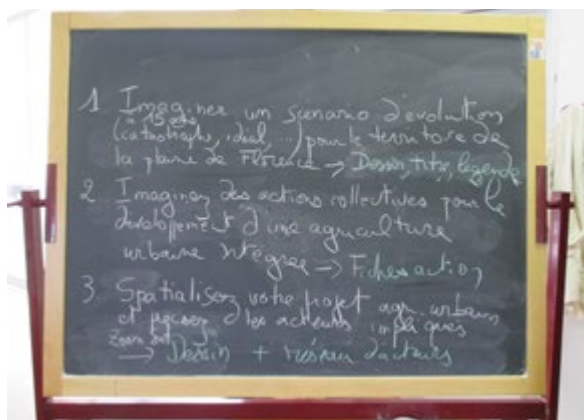 1 Imaginez un scenario d'évolution
(à 15 ans)
(catastrophe, idéal, ...) pour le territoire de
la plaine de Florence → Dessin, titre, légende
2 Imaginez des actions collectives pour le
developpement d'une agriculture
urbaine intégrée → Fiches action
3. Spatialisez votre projet agri-urbain
et precisez les acteurs impliqués
Zoom
→ Dessin + réseau d'acteurs